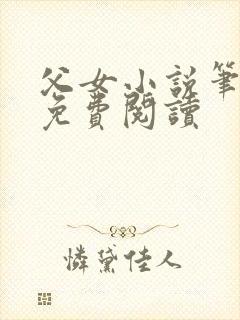 父女小说筆
免費閱讀
憐黛佳人